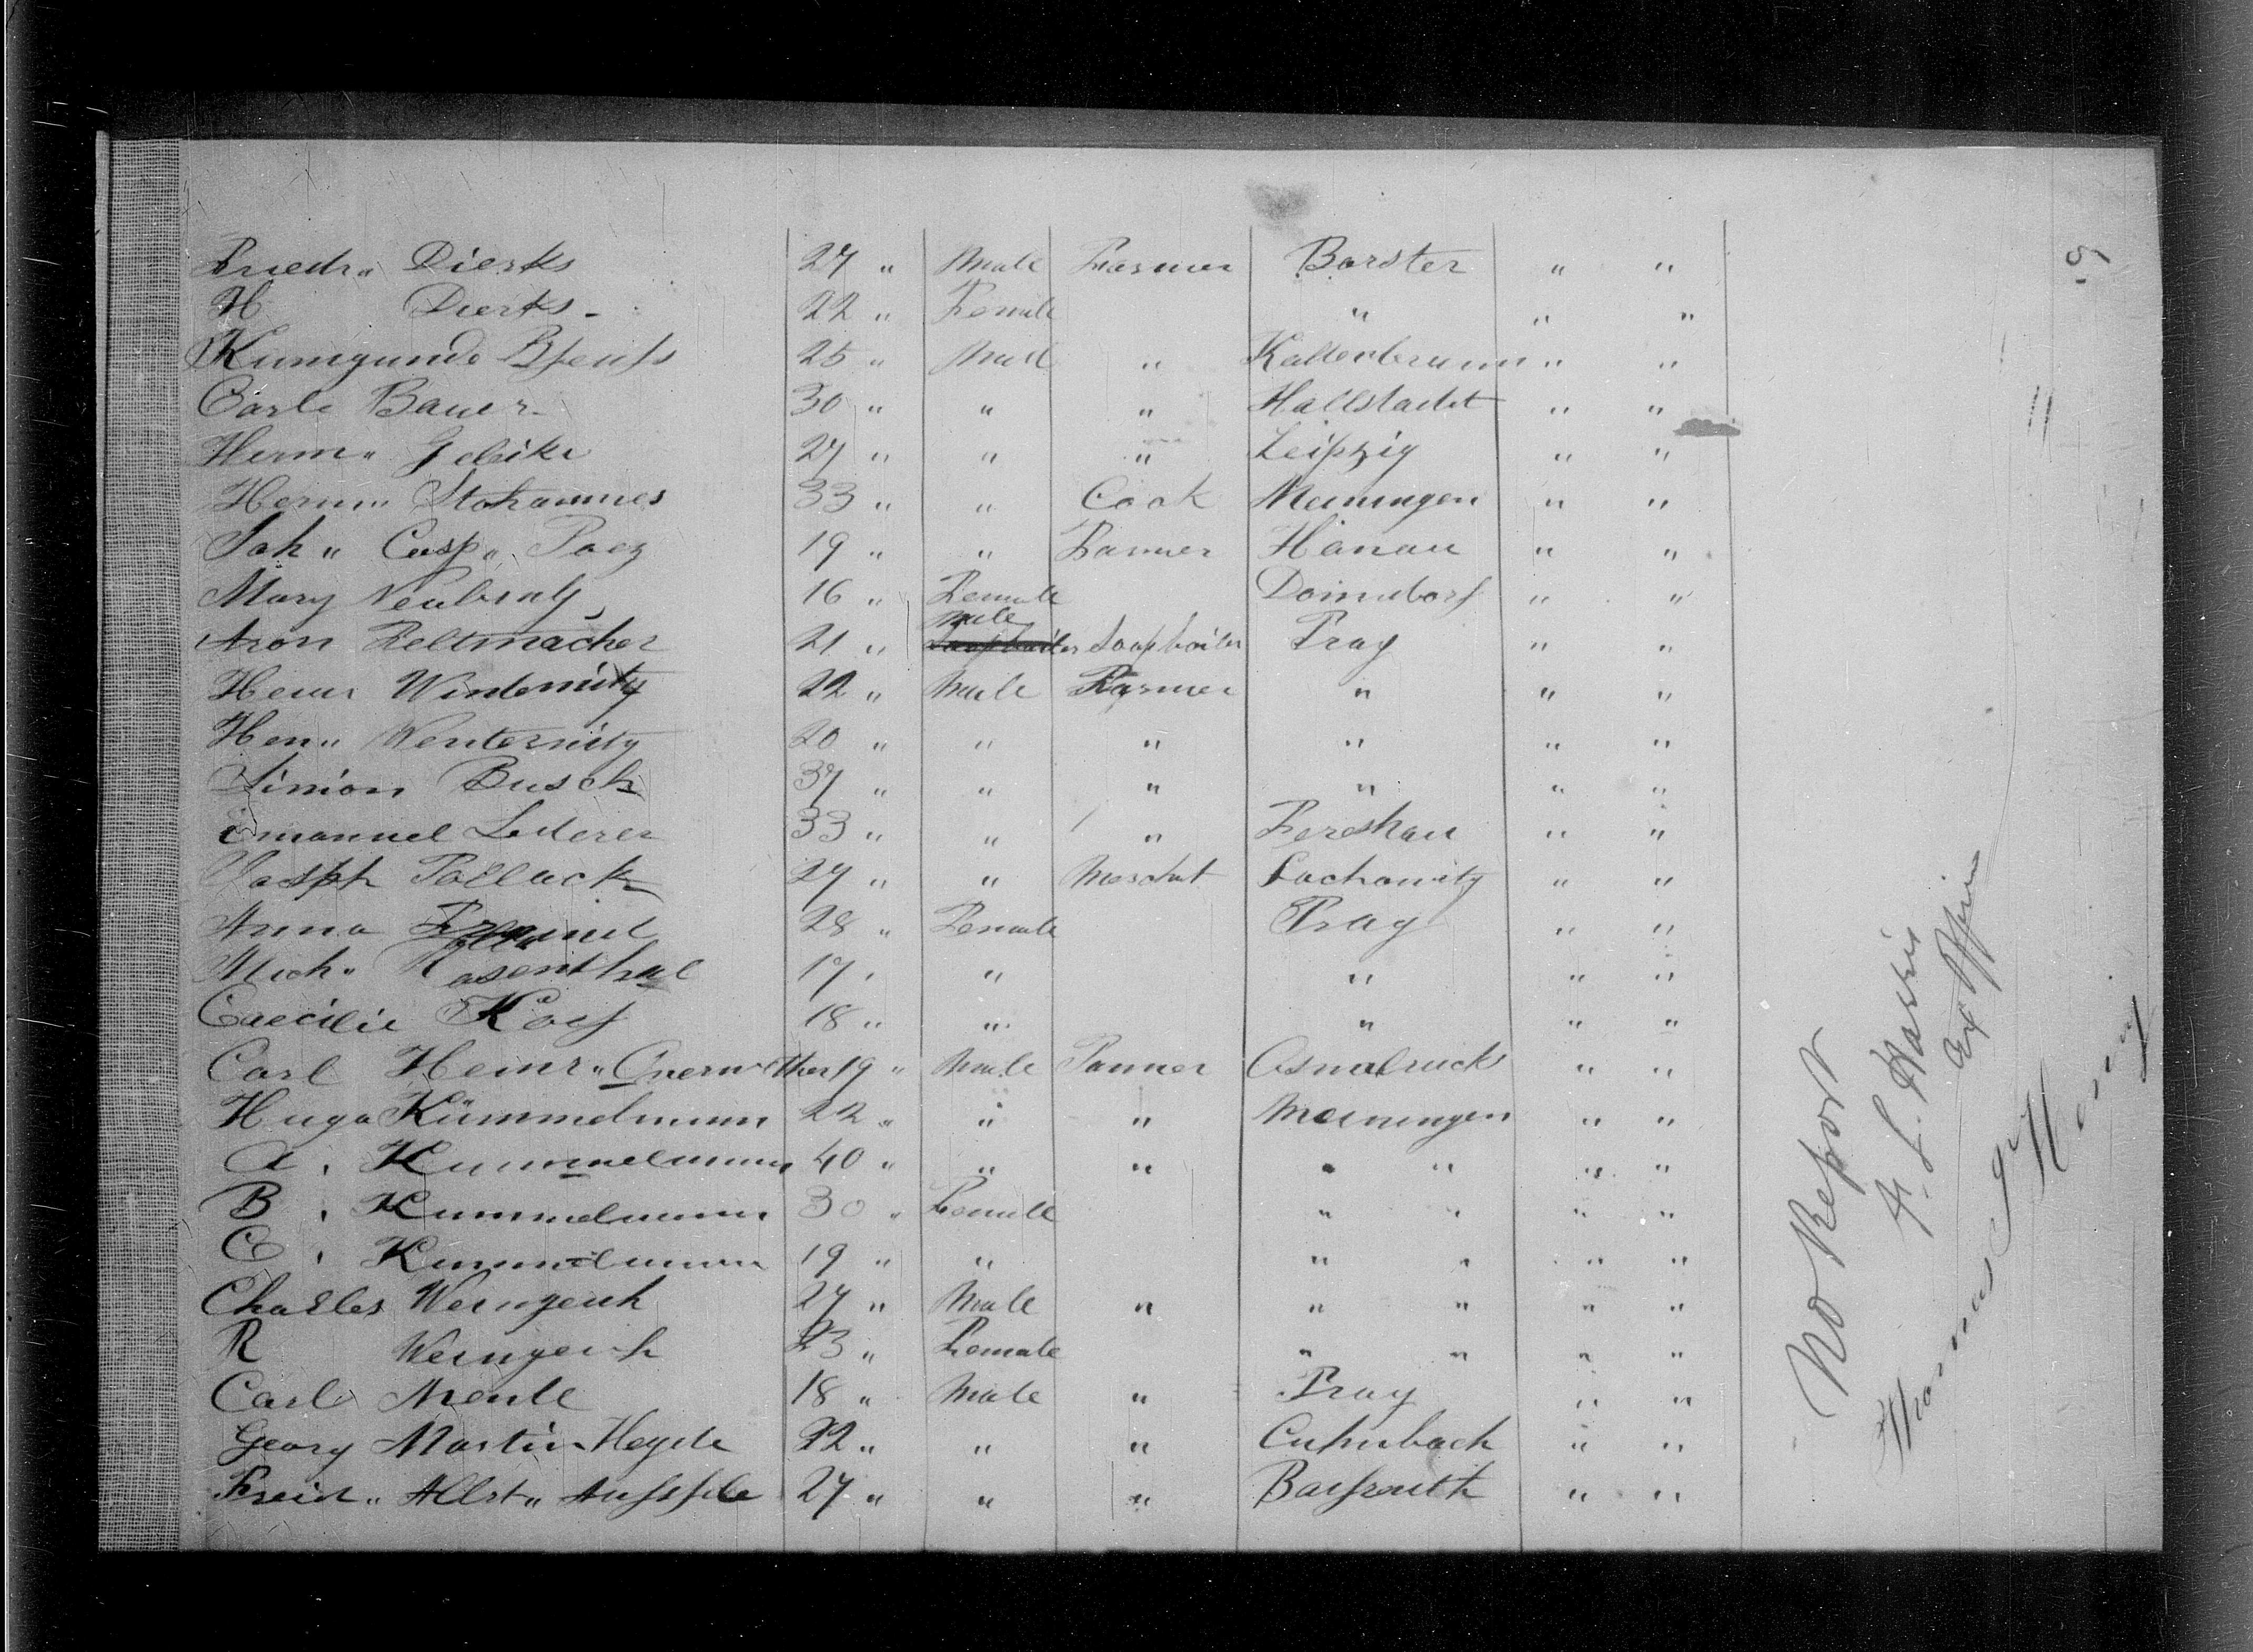 Friedr. Dierks 27 " Male Farmer Borster " "
H Dierks - 22 " Female " " "
Kunigunde 25 " Male " Kaltenbrunn " "
Carl Bauer 30 " " " Hallstadt " "
Herm. 27 " " " Leipzig " "
Herm. Stohannes 33 " " Cook Meiningen " "
Joh " Casp " Paez 19 " " Farmer Hanau " "
Mary 16 " Female " "
Aron Feltmacher 21 " Male Soapboiler Prag " "
Heinr Winternitz 22 " Male Farmer " " "
Hen " Wenternitz 20 " " " " " "
Simon Busch 37 " " " " " "
Emanuel Lederer 33 " " " " "
Joseph Pollack 27 " " Mercht Lochowitz " "
Anna 28 " Female Prag " "
Mich. Rosenthal 17 " " " " "
Caecilie 18 " " " " "
Carl Heinr " 19 " Male Farmer Osnabruck " "
Hugo Kümmelmann 22 " " " Meiningen " "
A. Kummelmann 40 " " " " " " "
B. Kummelmann 30 " Female " " " "
C. Kummelmann 19 " " " " " "
Charles 27 " Male " " " " "
R 23 " Female " " " "
Carl Menle 18 " Male " Prag " "
Georg Martin Heyde 22 " " " Culmbach " "
Freid " Albrt " 27 " " " Baireuth " "
5
No Report
Harris
Thomas